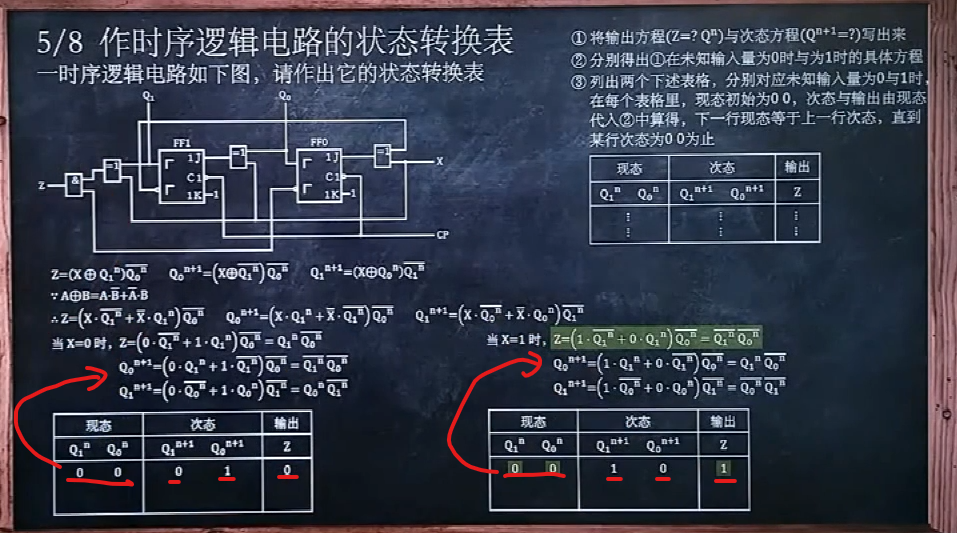 5/8 作时序逻辑电路的状态转换表
一时序逻辑电路如下图，请作出它的状态转换表
① 将输出方程(Z=? Qⁿ)与次态方程(Qⁿ⁺¹=?)写出来
② 分别得出①在未知输入量为0时与为1时的具体方程
③ 列出两个下述表格，分别对应未知输入量为0与1时，
在每个表格里，现态初始为0 0，次态与输出由现态
代入②中算得，下一行现态等于上一行次态，直到
某行次态为0 0为止
现态 次态 输出
Q₁ⁿ Q₀ⁿ Q₁ⁿ⁺¹ Q₀ⁿ⁺¹ Z
⋮ ⋮ ⋮
Q₁ Q₀
FF1 FF0
Z & =1 1J C1 1K 1 =1 1J C1 1K 1 =1 X
CP
Z=(X⊕Q₁ⁿ)Q̅₀̅ⁿ̅ Q₀ⁿ⁺¹=(X⊕Q̅₁̅ⁿ̅)Q̅₀̅ⁿ̅ Q₁ⁿ⁺¹=(X⊕Q₀ⁿ)Q̅₁̅ⁿ̅
∵A⊕B=A·B̅+A̅·B
∴Z=(X·Q̅₁̅ⁿ̅+X̅·Q₁ⁿ)Q̅₀̅ⁿ̅ Q₀ⁿ⁺¹=(X·Q₁ⁿ+X̅·Q̅₁̅ⁿ̅)Q̅₀̅ⁿ̅ Q₁ⁿ⁺¹=(X·Q̅₀̅ⁿ̅+X̅·Q₀ⁿ)Q̅₁̅ⁿ̅
当X=0时，Z=(0·Q̅₁̅ⁿ̅+1·Q₁ⁿ)Q̅₀̅ⁿ̅=Q₁ⁿ Q̅₀̅ⁿ̅
Q₀ⁿ⁺¹=(0·Q₁ⁿ+1·Q̅₁̅ⁿ̅)Q̅₀̅ⁿ̅=Q̅₁̅ⁿ̅ Q̅₀̅ⁿ̅
Q₁ⁿ⁺¹=(0·Q̅₀̅ⁿ̅+1·Q₀ⁿ)Q̅₁̅ⁿ̅=Q₀ⁿ Q̅₁̅ⁿ̅
现态 次态 输出
Q₁ⁿ Q₀ⁿ Q₁ⁿ⁺¹ Q₀ⁿ⁺¹ Z
0 0 0 1 0
当X=1时，Z=(1·Q̅₁̅ⁿ̅+0·Q₁ⁿ)Q̅₀̅ⁿ̅=Q̅₁̅ⁿ̅ Q̅₀̅ⁿ̅
Q₀ⁿ⁺¹=(1·Q₁ⁿ+0·Q̅₁̅ⁿ̅)Q̅₀̅ⁿ̅=Q₁ⁿ Q̅₀̅ⁿ̅
Q₁ⁿ⁺¹=(1·Q̅₀̅ⁿ̅+0·Q₀ⁿ)Q̅₁̅ⁿ̅=Q̅₀̅ⁿ̅ Q̅₁̅ⁿ̅
现态 次态 输出
Q₁ⁿ Q₀ⁿ Q₁ⁿ⁺¹ Q₀ⁿ⁺¹ Z
0 0 1 0 1